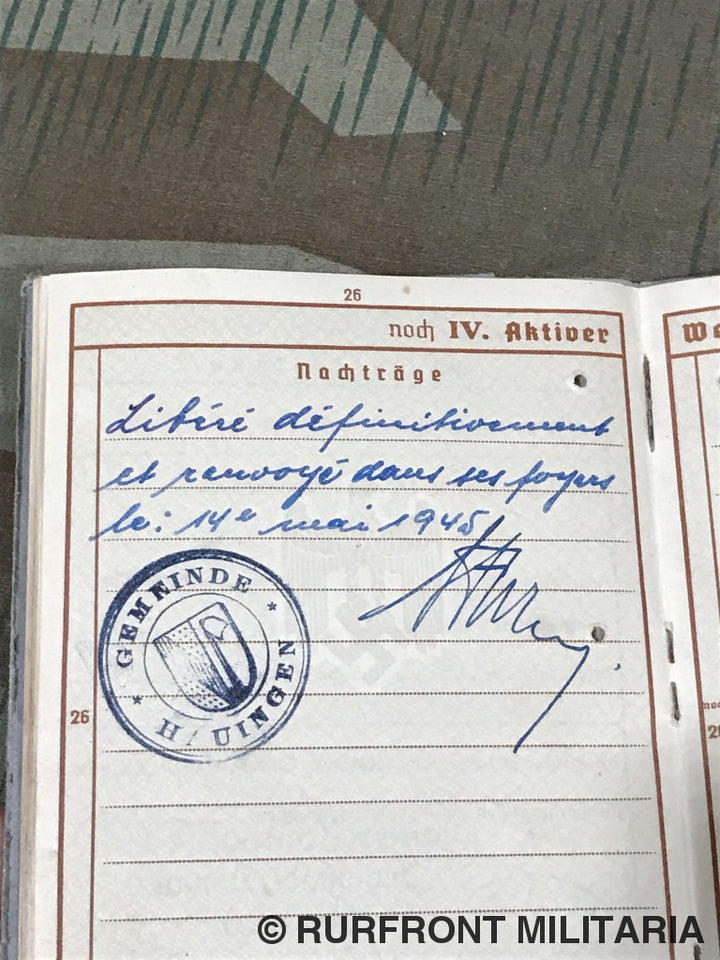 26
noch IV. Aktiver
We
Nachträge
Libéré définitivement
et renvoyé dans ses foyers
le: 14e mai 1945
GEMEINDE
HAUINGEN
26
© RURFRONT MILITARIA